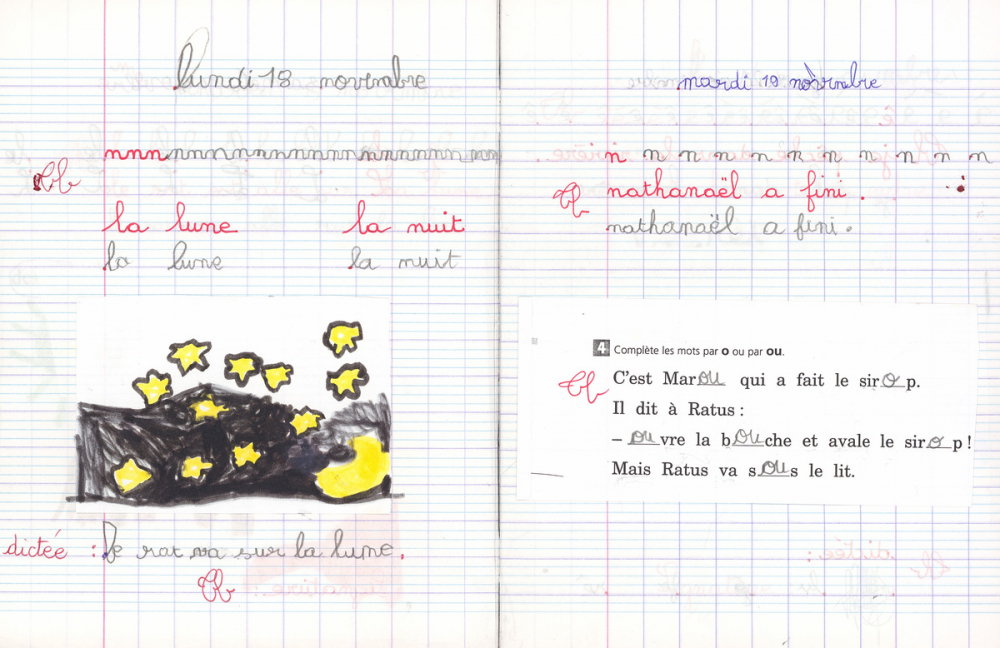 lundi 18 novembre
nnnnnnnnnnnnnnnnnnnnnn
Tb
la lune la nuit
la lune la nuit
dictée : Le rat va sur la lune.
Tb
mardi 19 novembre
n n n n n n n n n n n
Tb nathanaël a fini .
nathanaël a fini .
4 Complète les mots par o ou par ou.
Tb C'est Marou qui a fait le sirop.
Il dit à Ratus :
– ouvre la bouche et avale le sirop !
Mais Ratus va sous le lit.